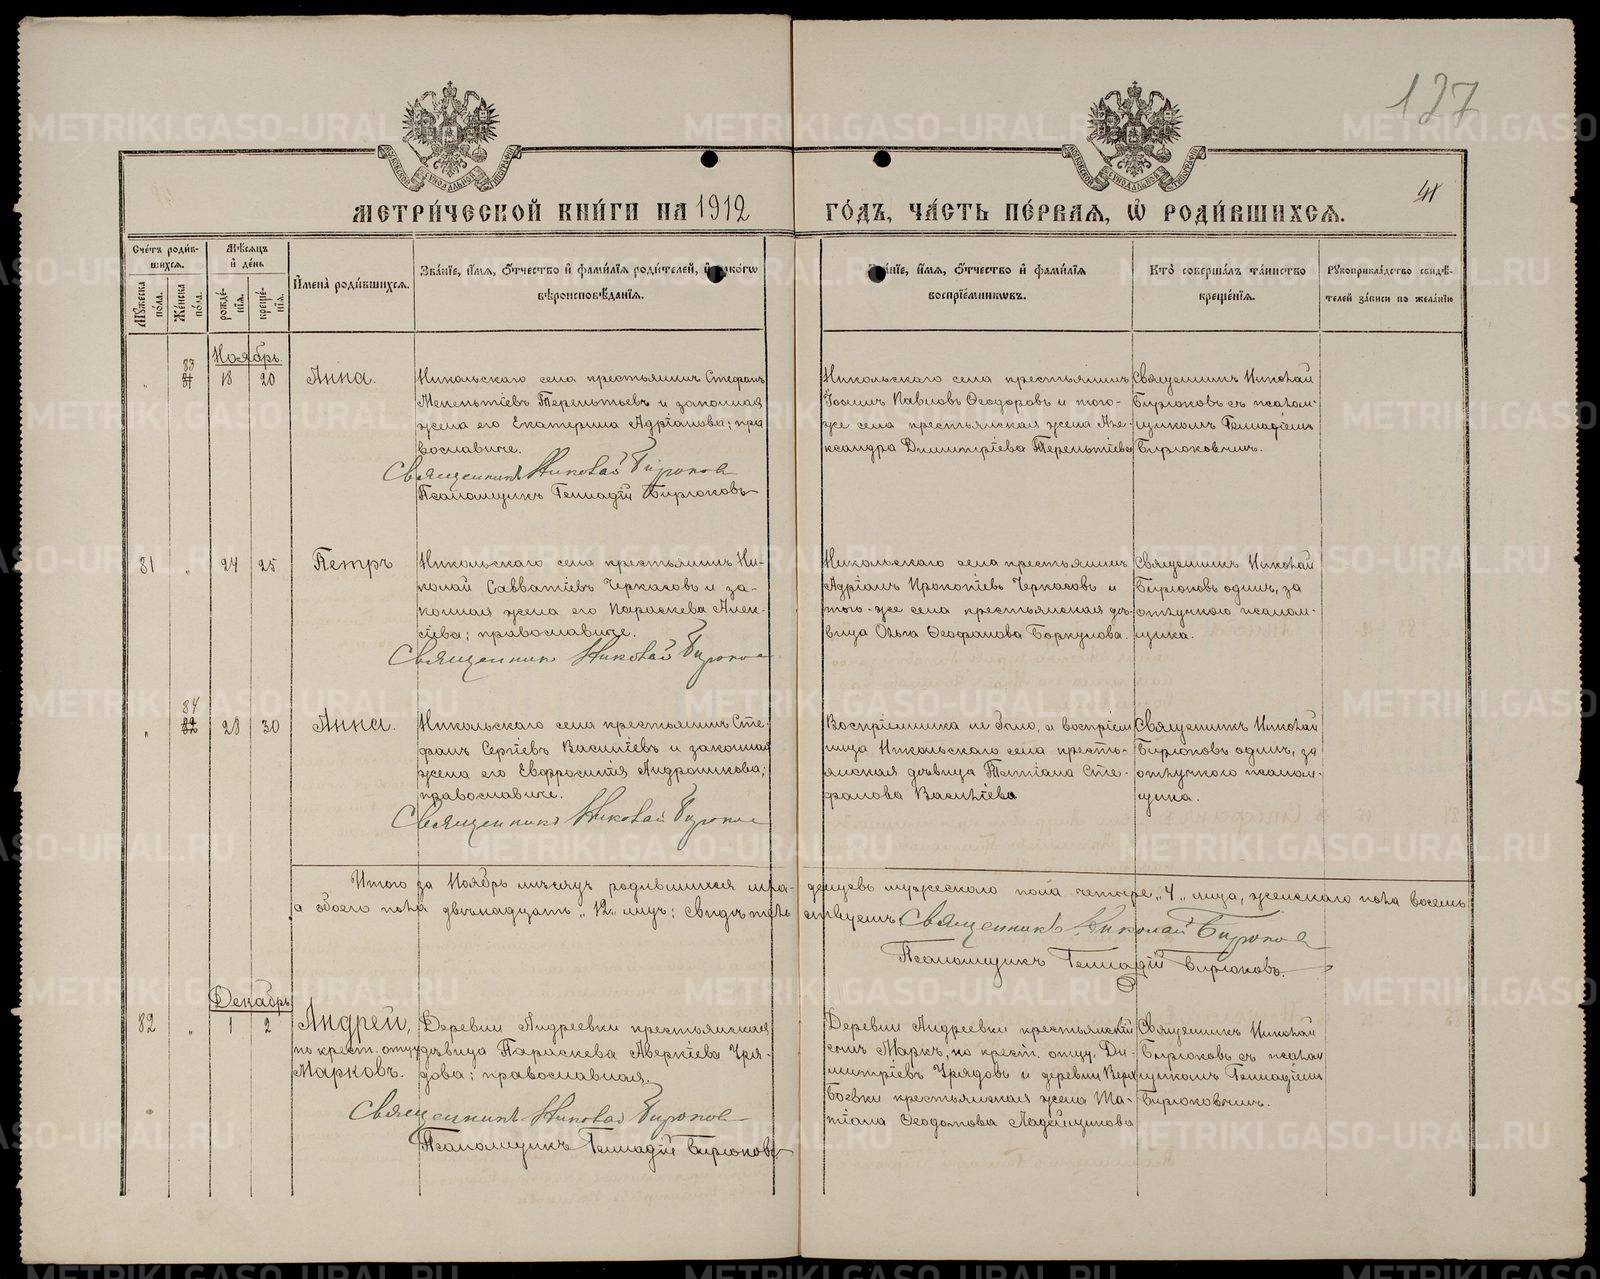 127
41
МЕТРИЧЕСКОЙ КНИГИ НА 1912
ГОДЪ, ЧАСТЬ ПЕРВАЯ, Ѿ РОДИВШИХСЯ.
Счетъ родив-
шихся.
Мужеска пола.
Женска пола.
Мѣсяцъ
и день
рожде-
нія.
креще-
нія.
Имена родившихся.
Званіе, имя, отчество и фамилія родителей, и какогѡ
вѣроисповѣданія.
Званіе, имя, отчество и фамилія
воспріемникѡвъ.
Кто совершалъ таинство
крещенія.
Рукоприкладство свидѣ-
телей записи по желанію
Ноябрь.
83
81
18
20
Анна.
Никольскаго села крестьянинъ Стефанъ
Мелентіевъ Терентьевъ и законная
жена его Екатерина Адріанова; пра
вославные.
Священникъ Николай Бирюковъ
Псаломщикъ Геннадій Бирюковъ
Никольскаго села крестьянинъ
Іоаннъ Павловъ Ѳеодоровъ и того-
же села крестьянская жена Але-
ксандра Димитріева Терентіева
Священникъ Николай
Бирюковъ съ псалом-
щикомъ Геннадіемъ
Бирюковымъ.
81
"
24
25
Петръ
Никольскаго села крестьянинъ Ни-
колай Савватіевъ Черкасовъ и за-
конная жена его Параскева Алек-
сіева; православные.
Священникъ Николай Бирюковъ
Никольскаго села крестьянинъ
Адріанъ Прокопіевъ Черкасовъ и
того-же села крестьянская дѣ-
вица Ольга Ѳеофанова Боркунова.
Священникъ Николай
Бирюковъ одинъ, за
отлучкою псалом-
щика.
84
82
"
28
30
Анна.
Никольскаго села крестьянинъ Сте-
фанъ Сергіевъ Василіевъ и законная
жена его Евфросинія Андроникова;
православные.
Священникъ Николай Бирюковъ
Воспріемника не было, а воспріем
ница Никольскаго села кресть-
янская дѣвица Татіана Сте-
фанова Василіева
Священникъ Николай
Бирюковъ одинъ, за
отлучкого псалом-
щика.
Итого за Ноябрь мѣсяцъ родившихся мла- денцевъ мужескаго пола четыре „4„ лица, женскаго пола восемь
а обоего пола двѣнадцать „12„ лицъ; свидѣтель ствуемъ: Священникъ Николай Бирюковъ
Псаломщикъ Геннадій Бирюковъ.
Декабрь
82
"
1
2
Андрей,
по крест. отцу
Марковъ.
Деревни Андреевки крестьянская
дѣвица Параскева Аверкіева Уря-
дова; православная.
Священникъ Николай Бирюковъ
Псаломщикъ Геннадій Бирюковъ
Деревни Андреевки крестьянскій
сынъ Маркъ, по крест. отцу, Ди-
митріевъ Урядовъ и деревни Верх
Боевки крестьянская жена Та-
тіана Ѳеодотова Ладейщикова
Священникъ Николай
Бирюковъ съ псалом
щикомъ Геннадіемъ
Бирюковымъ.
METRIKI.GASO-URAL.RU